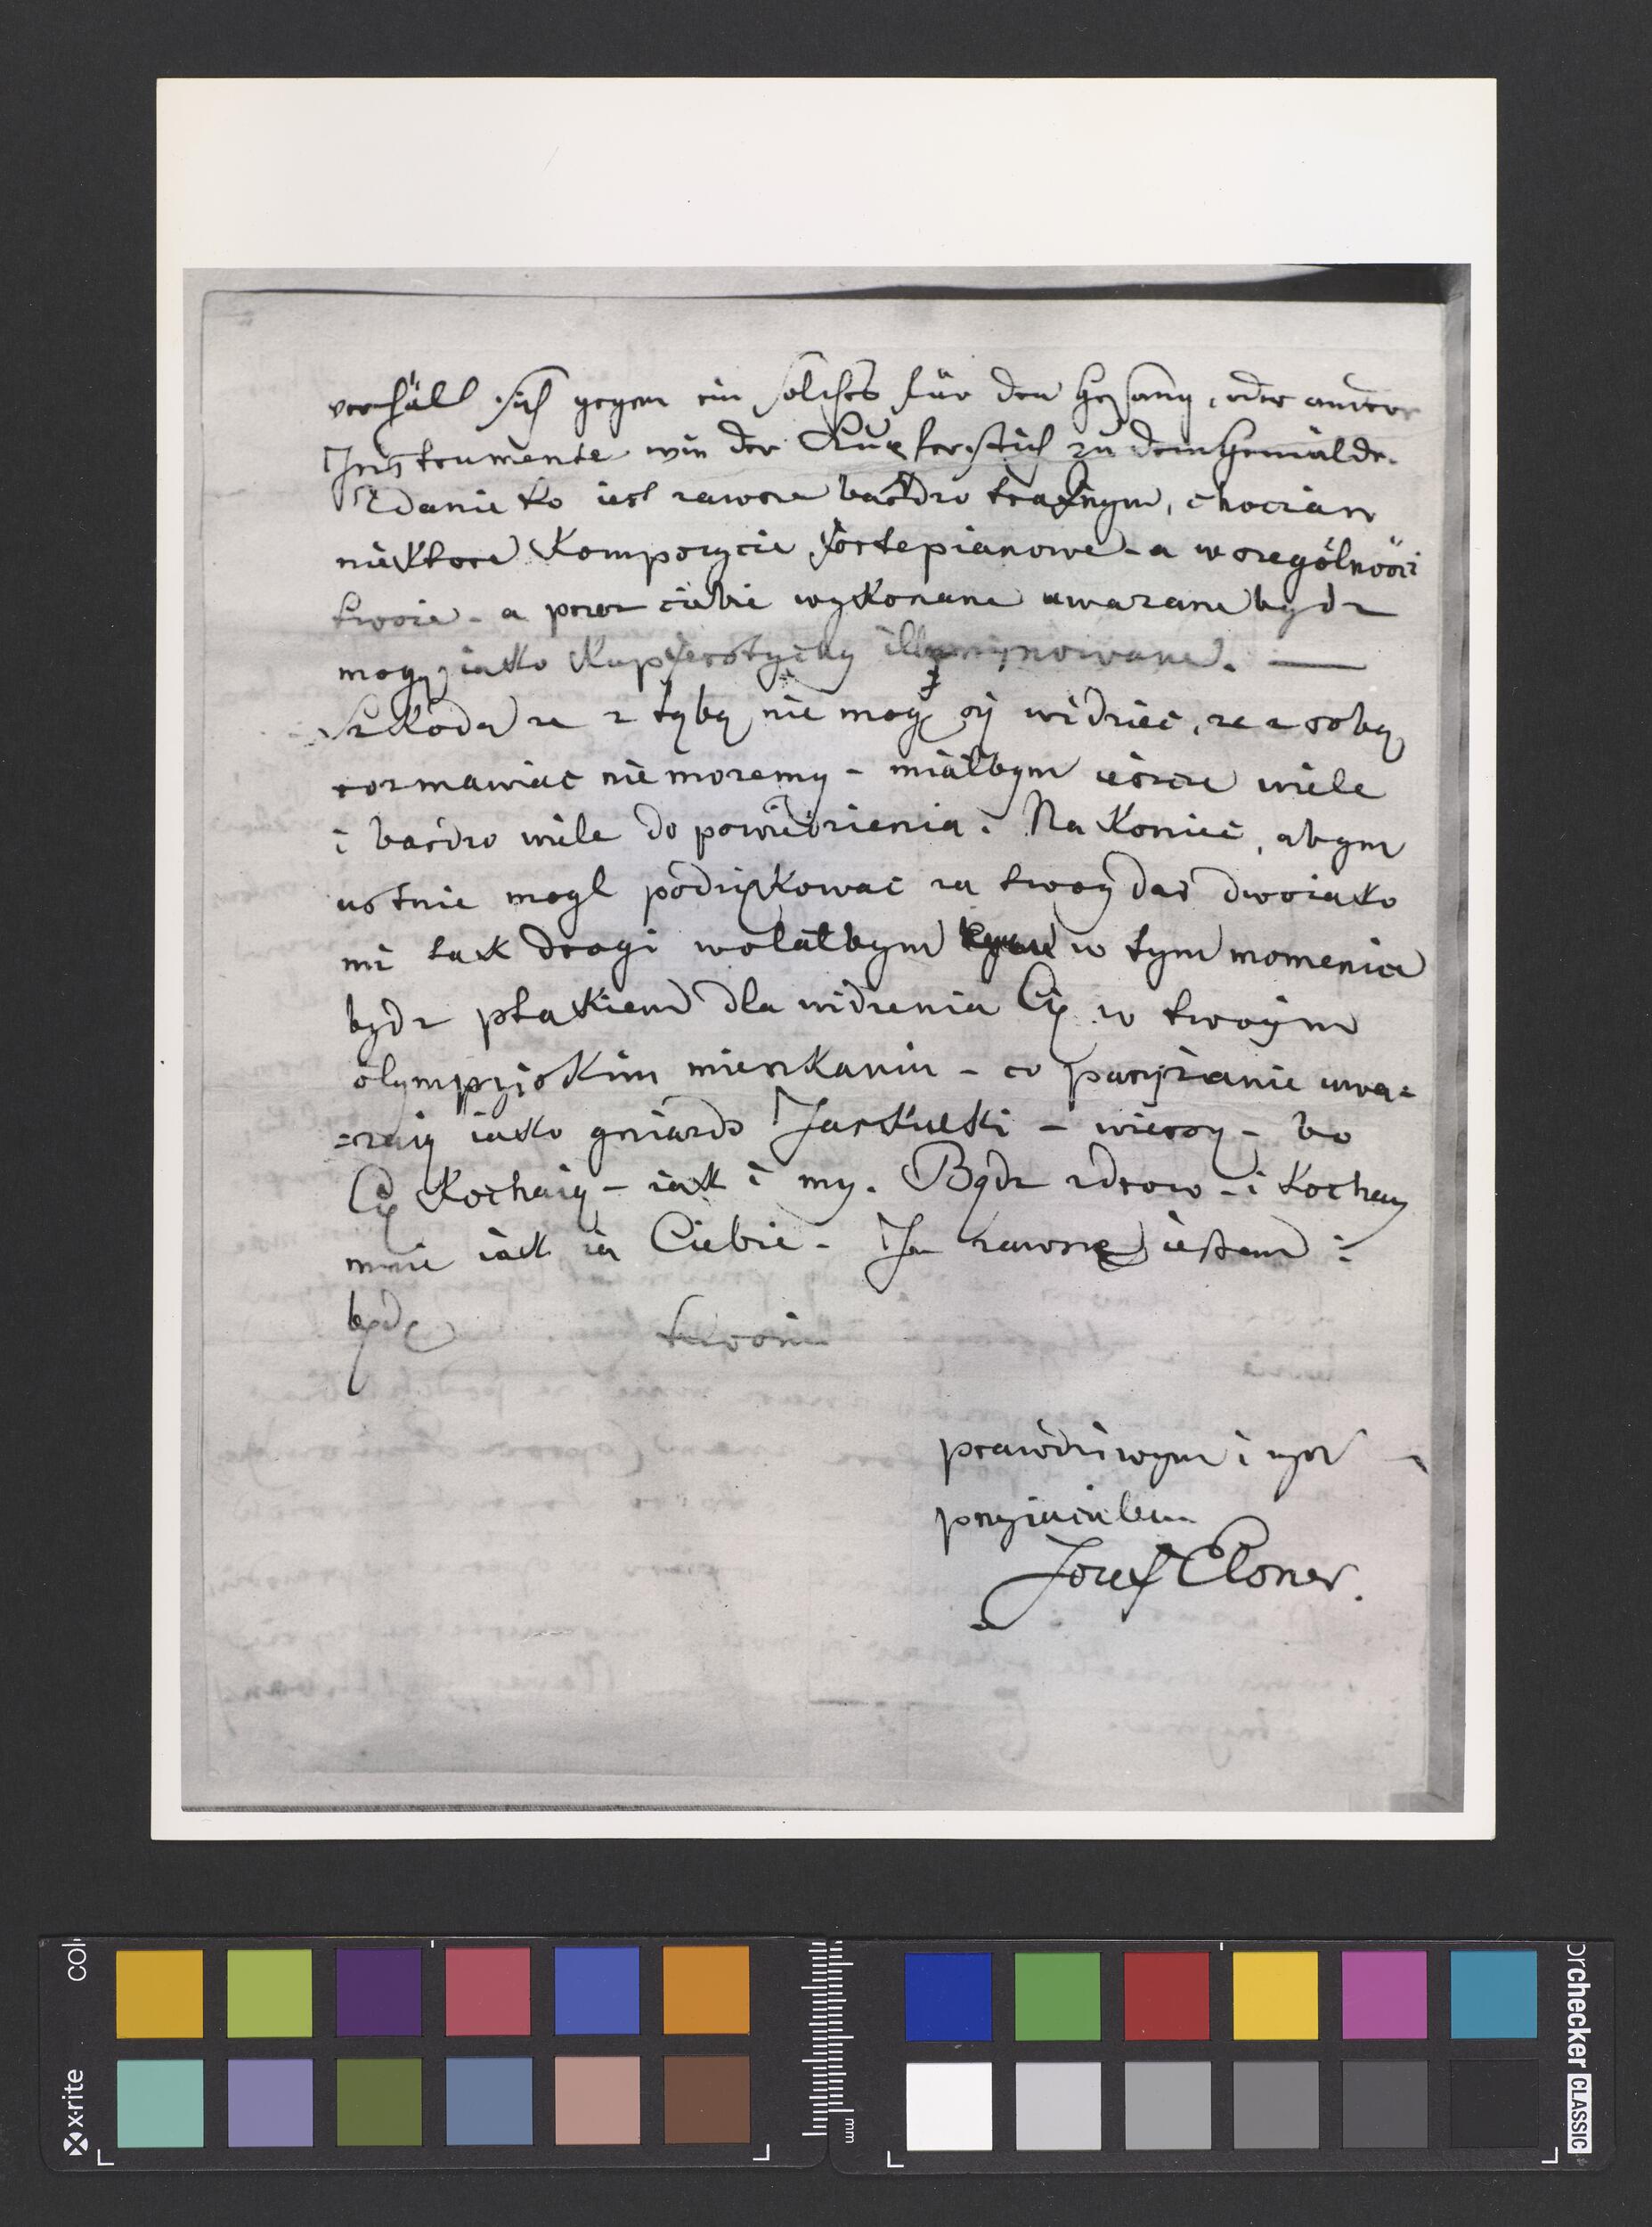 verhält sich gegen ein solches für den Gesang, oder andere
Instrumente wie der Kupferstich zu dem Gemälde.
Zdanie to iest zawsze bardzo trafnym, chociasz
niektore Kompozycie fortepianowe - a w szczegolnosci
twoie - a przez ciebie wykonane uwazane bydz
mogą iako Kupfersztychy illuminowane. —
Szkoda ze z tobą nie mogę się widziec, ze z sobą
rozmawiac nie mozemy - miałbym ieszcze wiele
i bardzo wiele do powiedzienia. Na Koniec, abym
ustnie mogl podziękowac za twoy dar dwoiako
mi tak drogi wolałbym w tym momencie
bydz ptakiem dla widzenia Cię w twoym
olympyiskim mieszkaniu - co paryżanie uwa=
=zaią iako gniazdo Jaskulki - wierzy - bo
Cię Kochaią - iak i my. Bądz zdrow - i Kochay
mnie iak ia Ciebie - Ja zawsze iestem i
będę twoim
prawdziwym i
przyiacielem
Jozef Elsner.
colorchecker CLASSIC
x-rite
mm